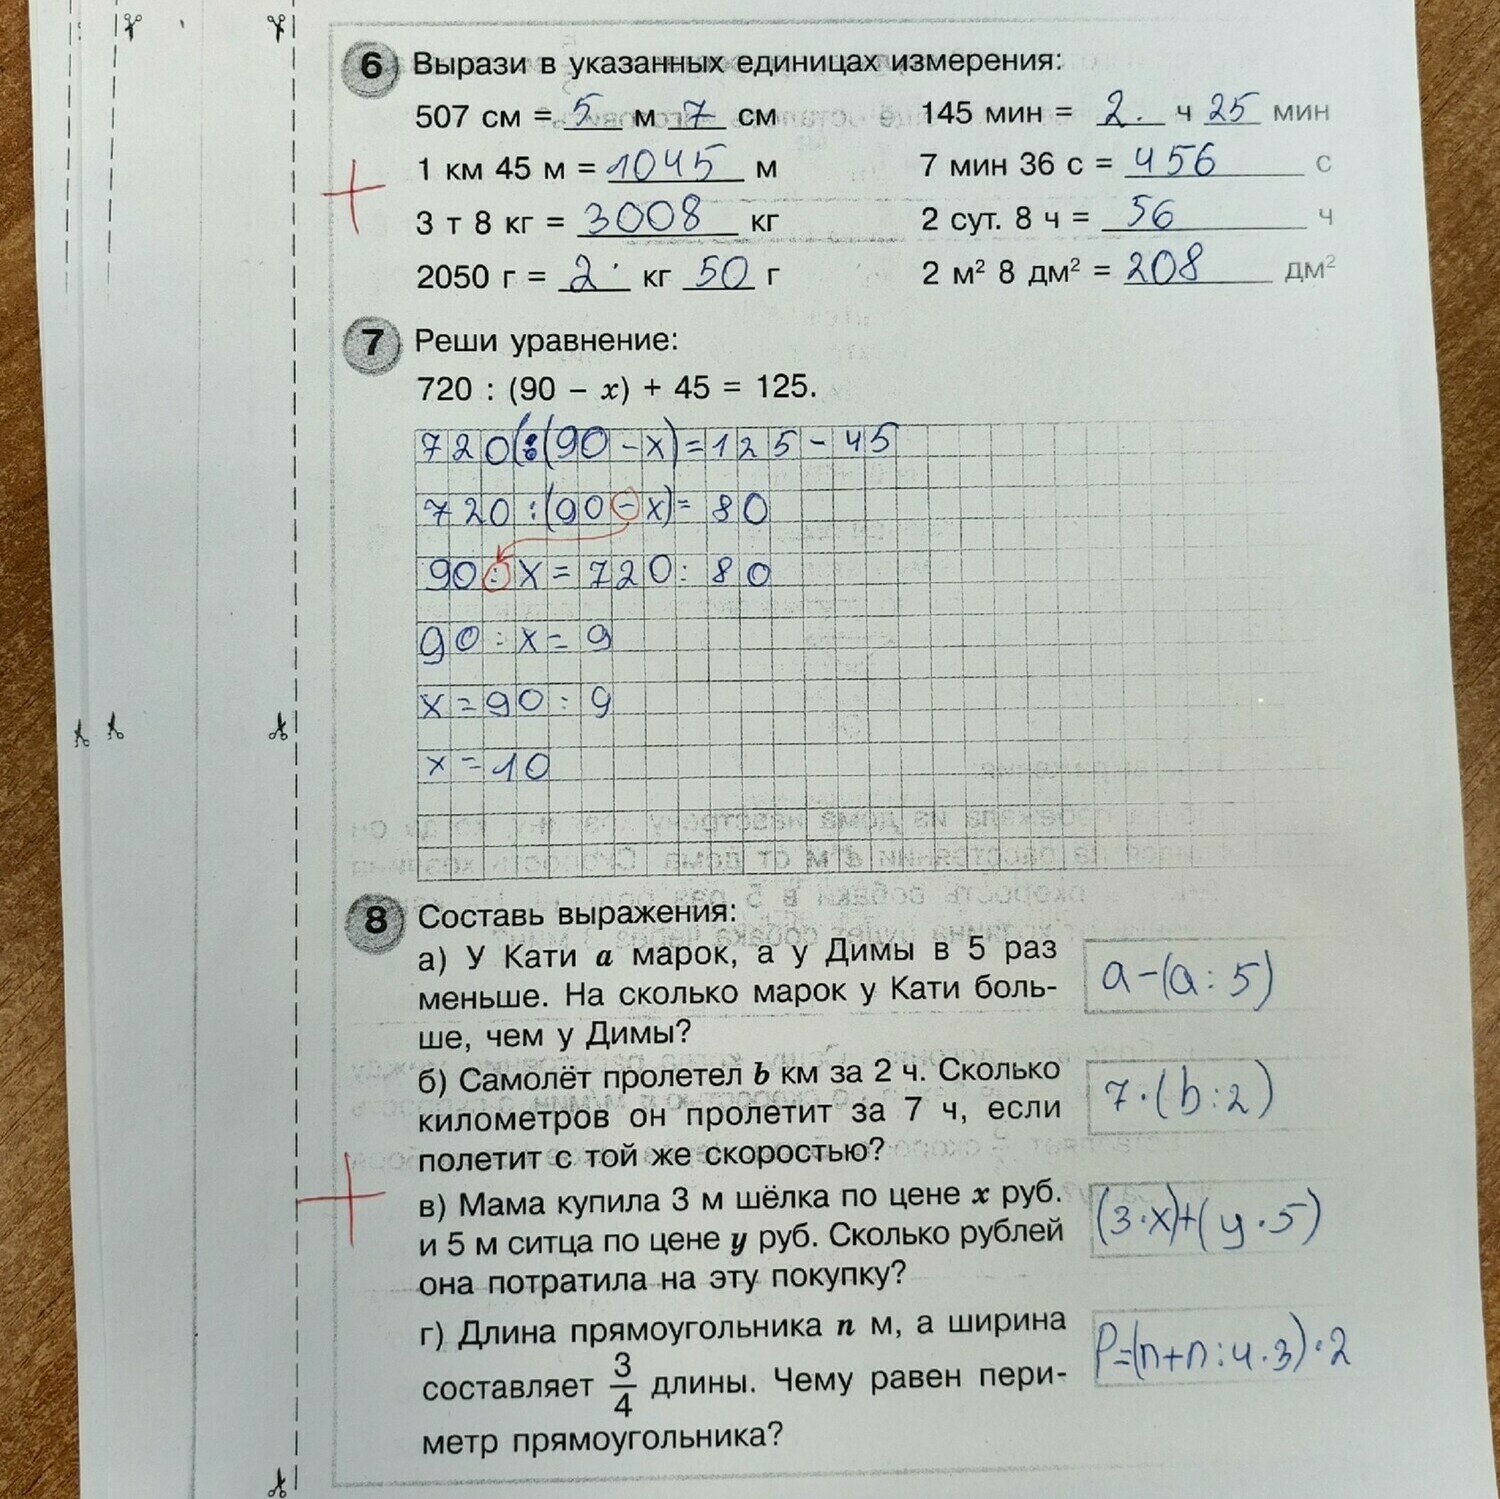 6 Вырази в указанных единицах измерения:
507 см = 5 м 7 см
145 мин = 2. ч 25 мин
1 км 45 м = 1045 м
7 мин 36 с = 456 с
3 т 8 кг = 3008 кг
2 сут. 8 ч = 56 ч
2050 г = 2 кг 50 г
2 м² 8 дм² = 208 дм²
7 Реши уравнение:
720 : (90 – x) + 45 = 125.
720(:(90-x)=125-45
720:(90-x)=80
90:x=720:80
90:x=9
x=90:9
x=10
8 Составь выражения:
а) У Кати a марок, а у Димы в 5 раз
меньше. На сколько марок у Кати боль-
ше, чем у Димы?
a-(a:5)
б) Самолёт пролетел b км за 2 ч. Сколько
километров он пролетит за 7 ч, если
полетит с той же скоростью?
7·(b:2)
в) Мама купила 3 м шёлка по цене x руб.
и 5 м ситца по цене y руб. Сколько рублей
она потратила на эту покупку?
(3·x)+(y·5)
г) Длина прямоугольника n м, а ширина
составляет 3/4 длины. Чему равен пери-
метр прямоугольника?
P=(n+n:4·3)·2